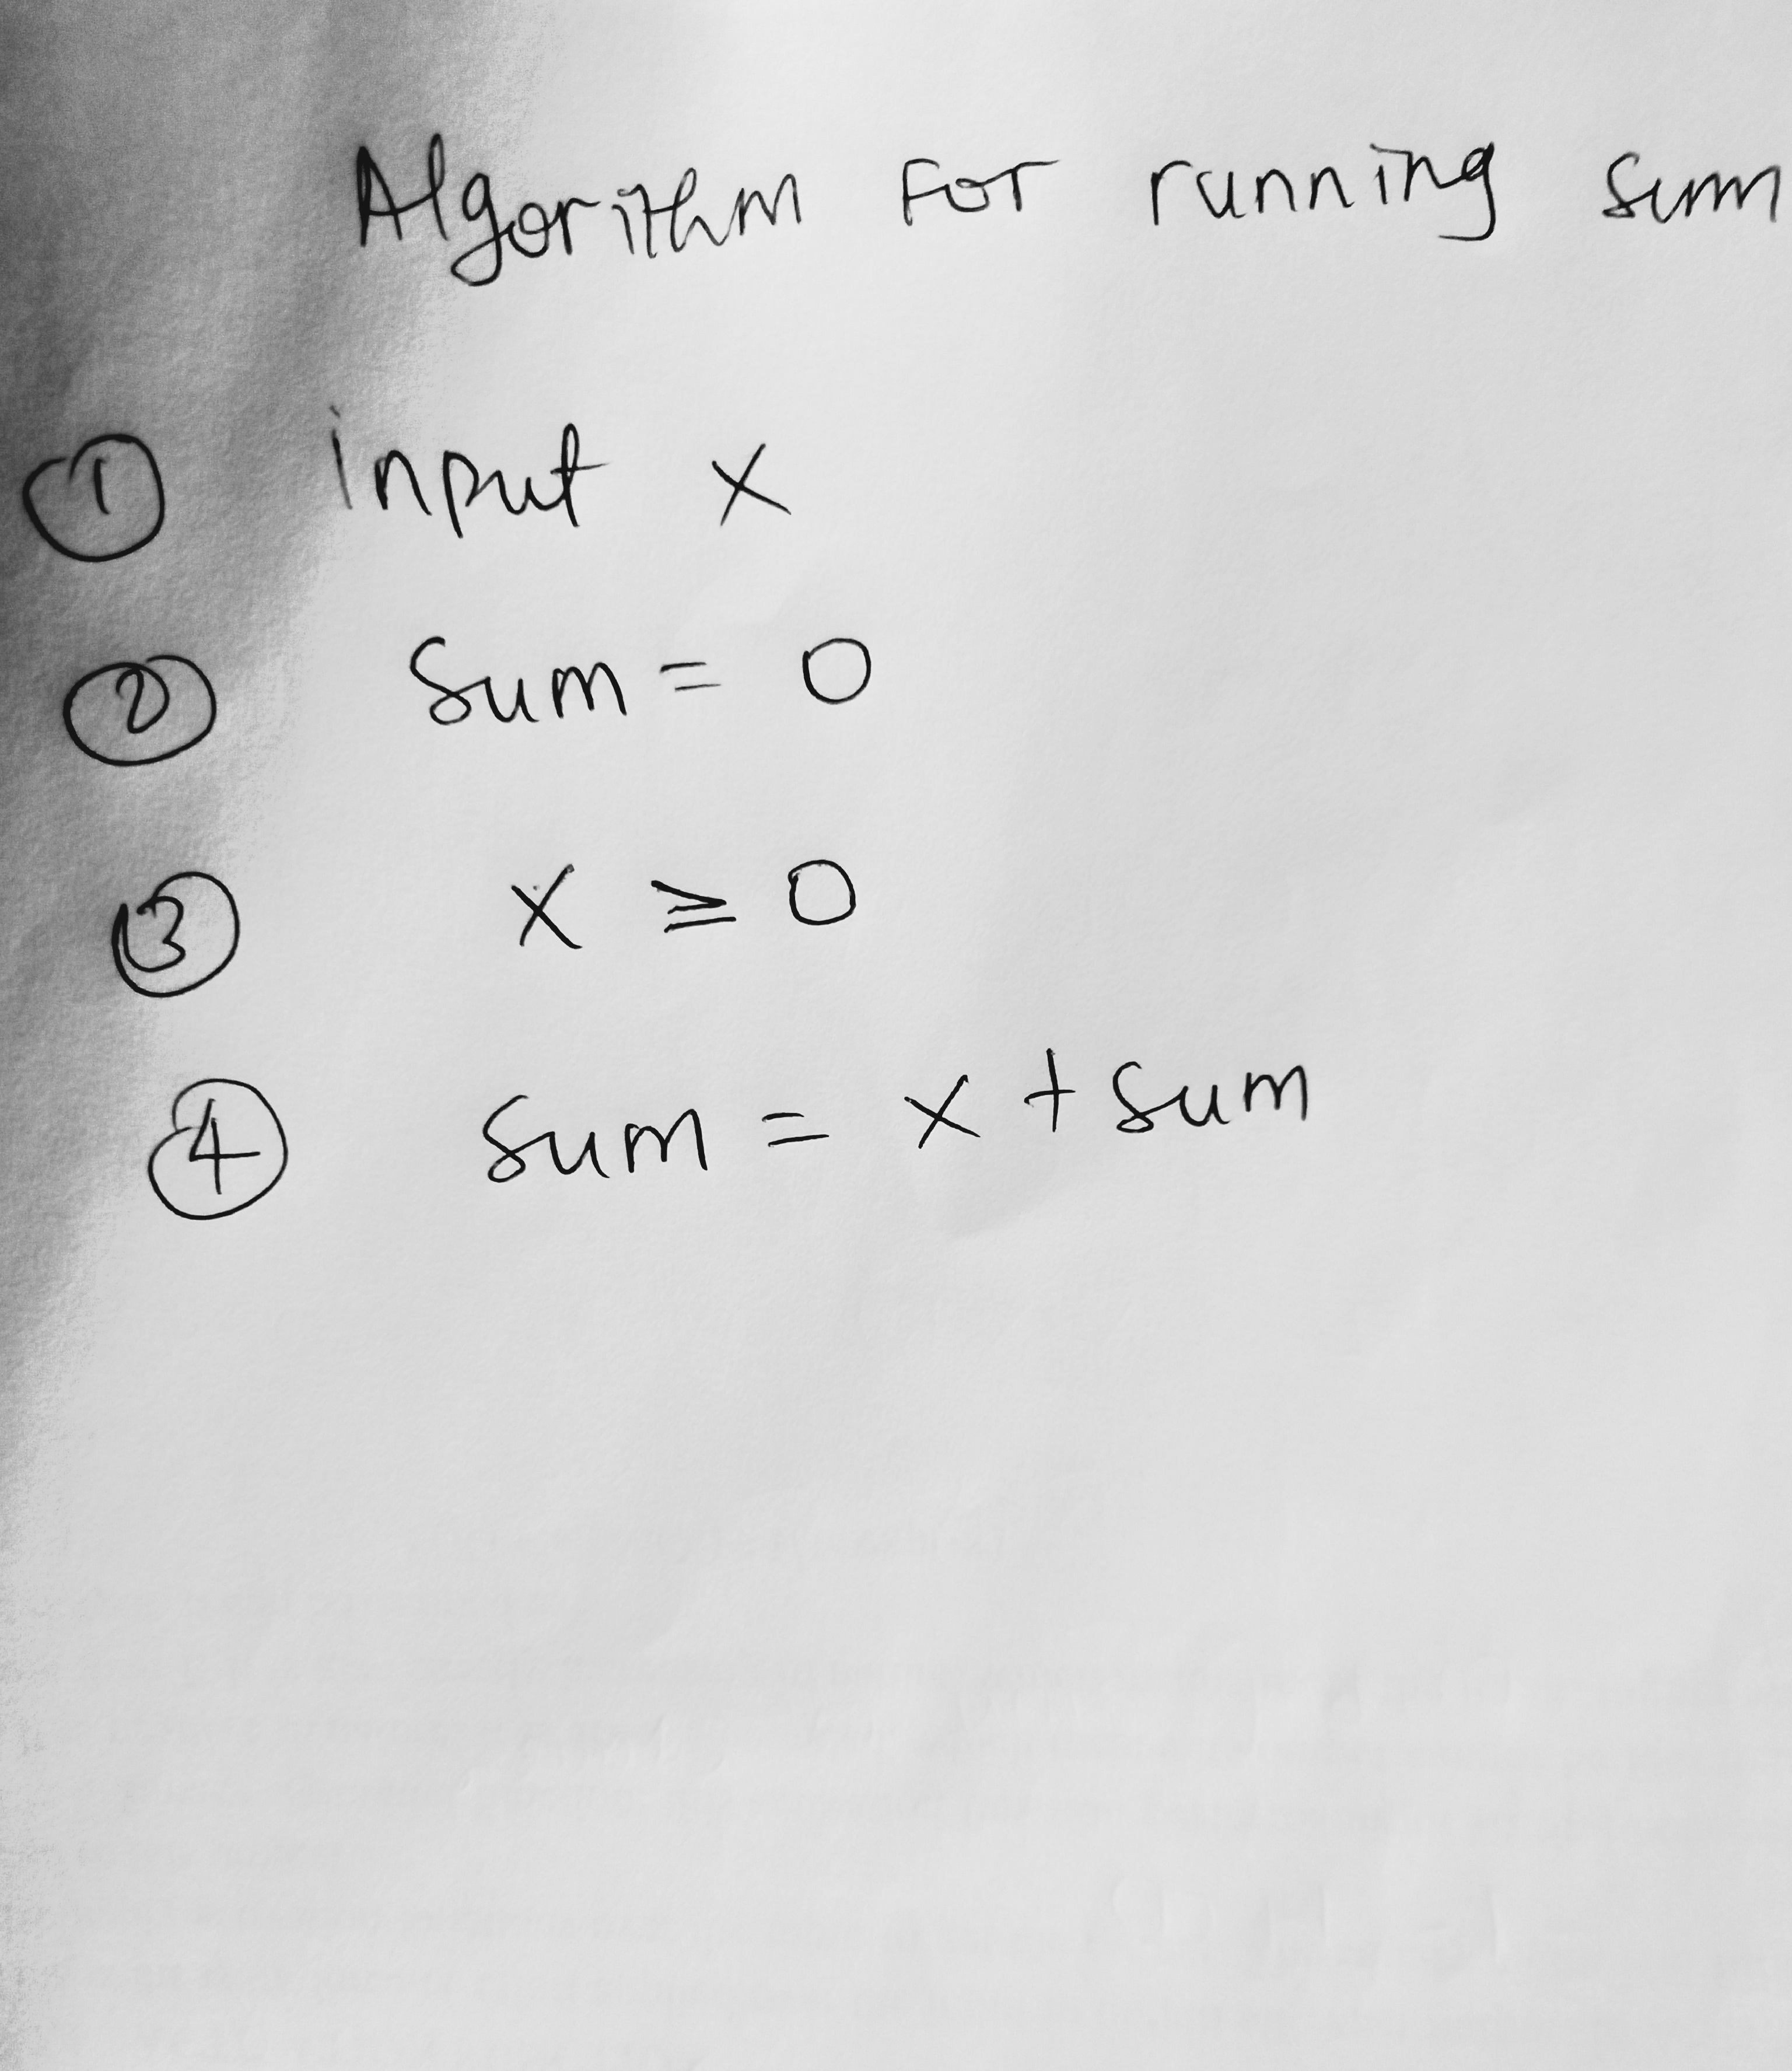 Algorithm For running sum
① input x
② Sum = 0
③ x ≥ 0
④ Sum = x + Sum